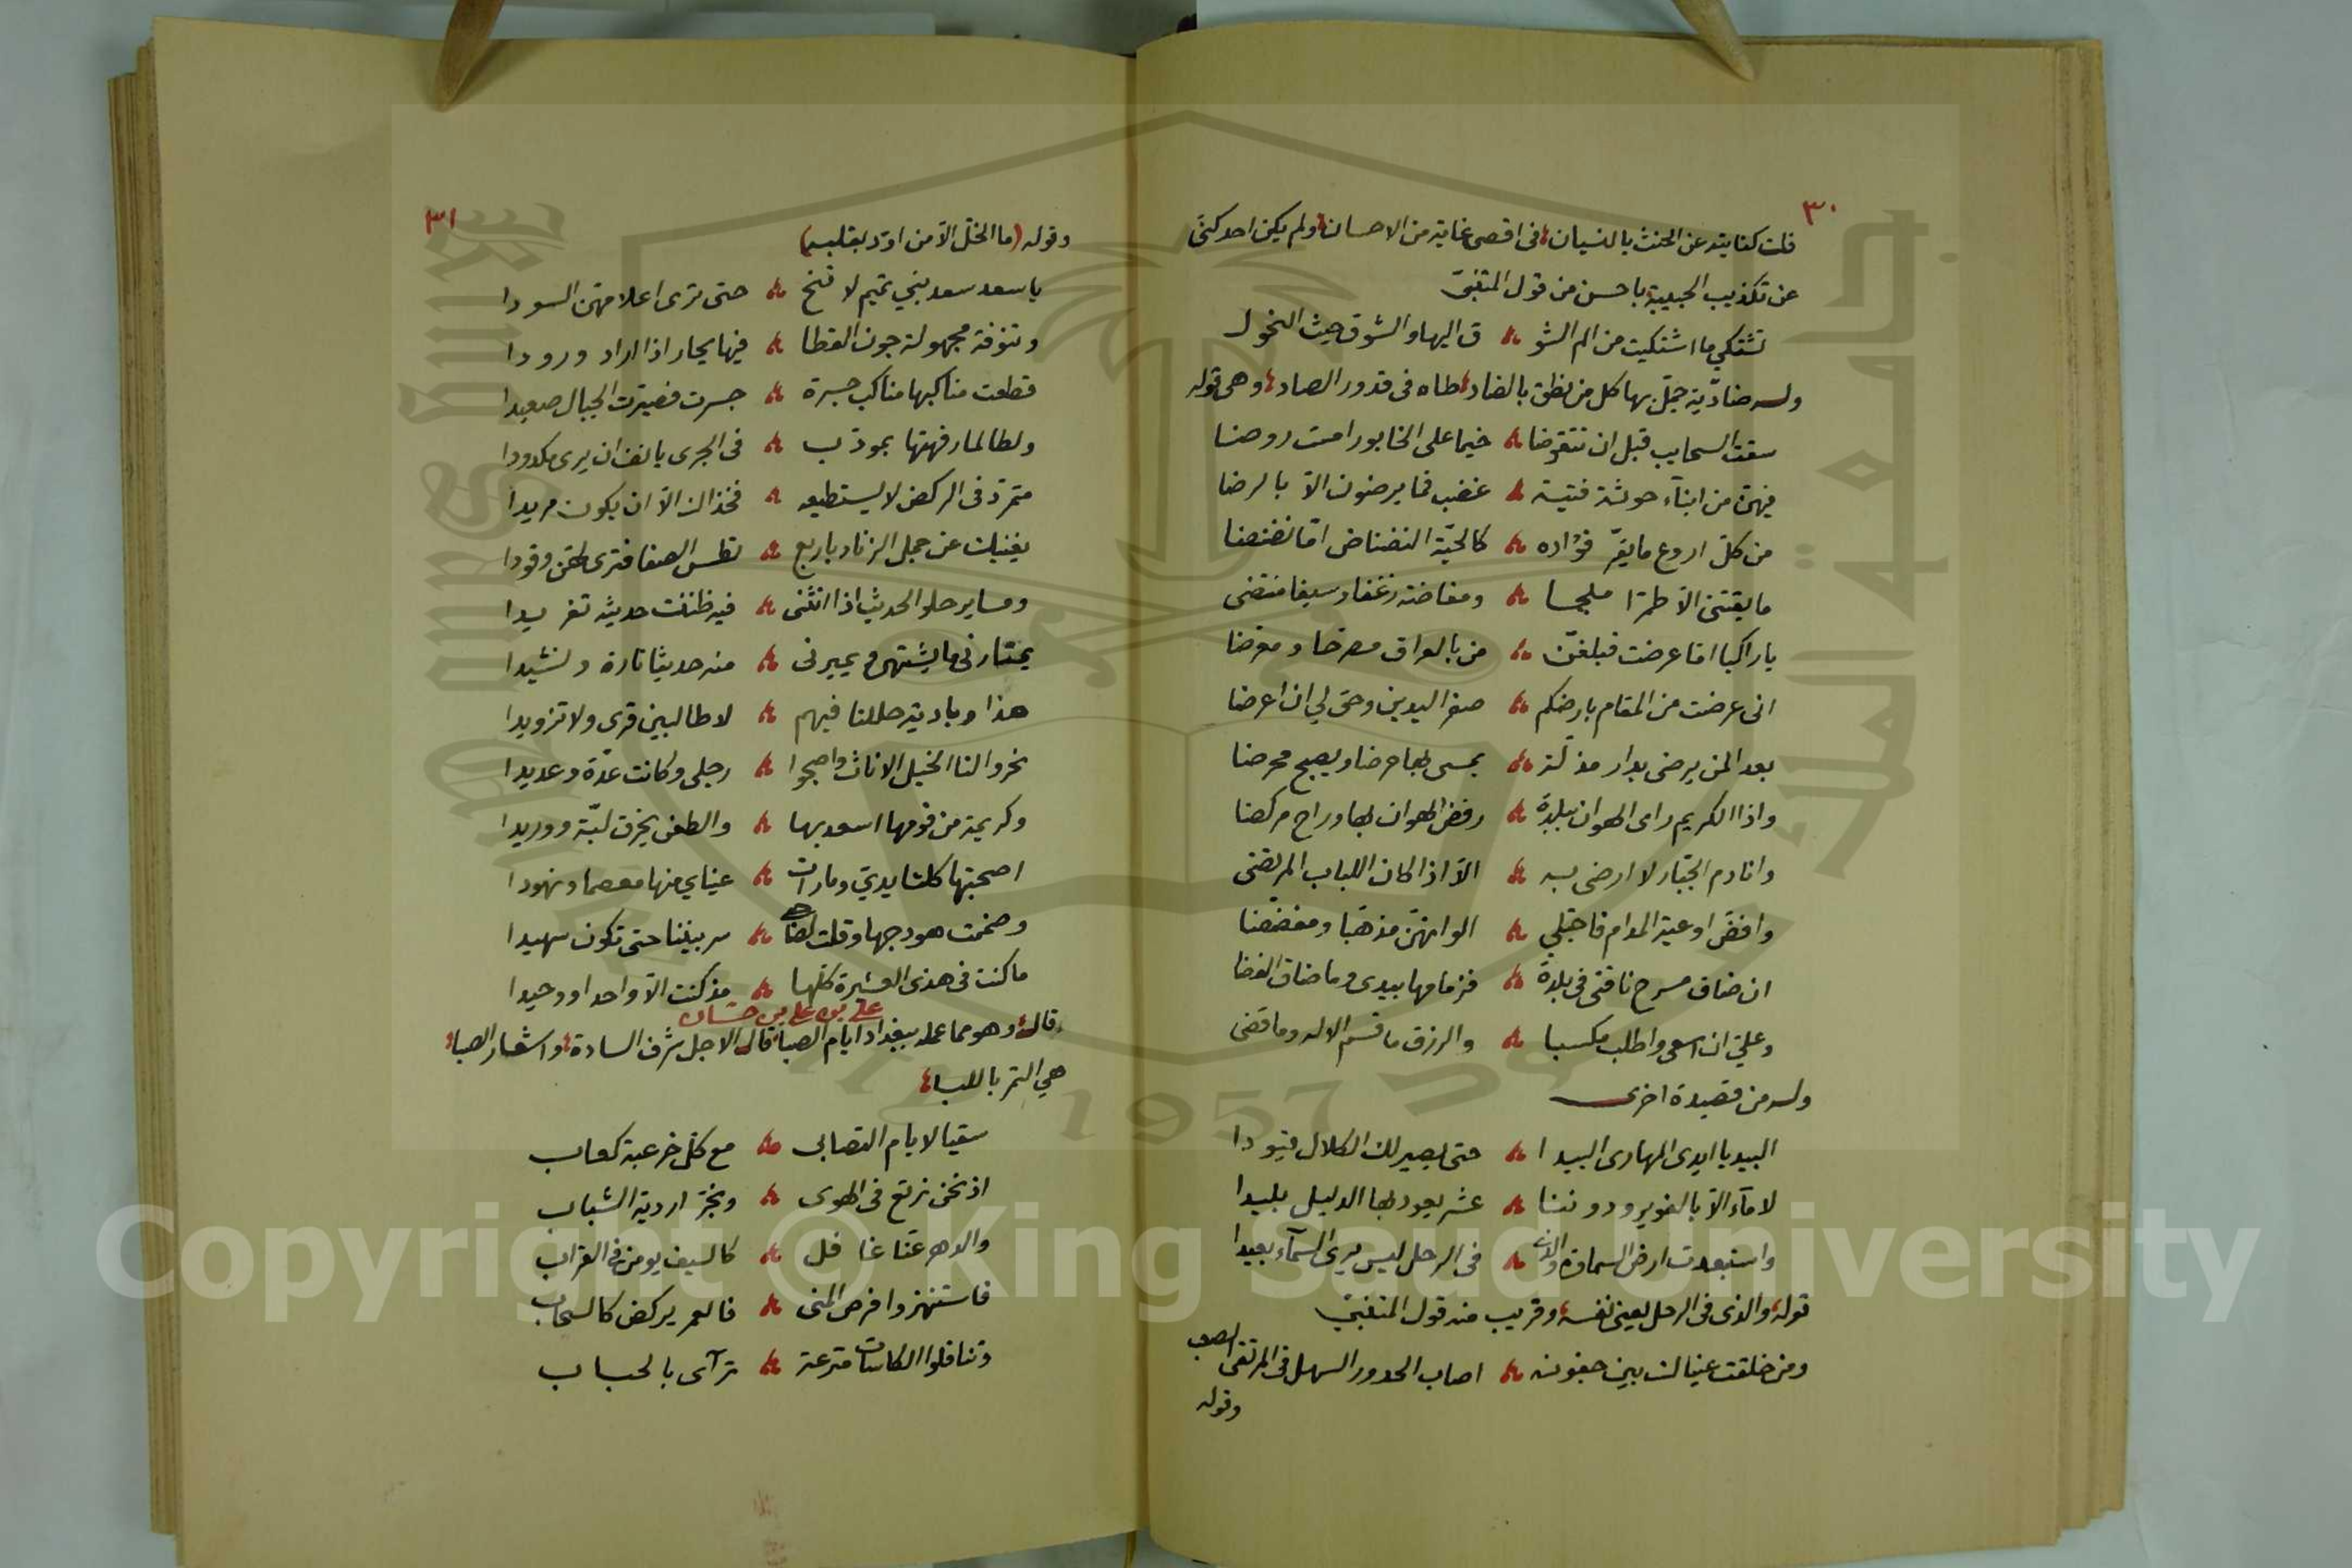 ٣٠
قلت كنايته عن الحنث بالنسيان في اقصى غاية من الاحسان ولم يكن احد كنى
عن تكذيب الحبيبة باحسن من قول المتنبي
تشتكي ما اشتكيت من الم الشو ق اليها والشوق حيث النحول
وله ضادّية جمّل بها كل من نطق بالضاد طاه في قدور الصاد وهي قوله
سقت السحايب قبل ان تتقوضا خيما على الخابور امست روضا
فيهن من ابنآء حوثة فتية غضب فما يرضون الآ بالرضا
من كل اروع ما يقرّ فؤاده كالحيّة النضناض امّا نضنضا
ما يقتنى الا طمرّا ملجما ومفاضة زغفا وسيفا منتضى
يا راكبا اما عرضت فبلغنّ من بالعراق مصرحا ومعرضا
انى عرضت من المقام بارضكم صفر اليدين وحق لي ان اعرضا
بعدا لمن يرضى بدار مذلّة يمسى لها حرضا ويصبح محرضا
واذا الكريم راى الهوان ببلدة رفض الهوان لها وراح مركضا
وانا دم الجبّار لا ارضى به الا اذا كان اللباب المرتضى
وافضّ اوعية المدام فاجتلي الوانهنّ مذهّبا ومفضّضا
ان ضاق مسرح ناقتى في بلدة فزمامها بيدى وما ضاق الفضا
وعليّ ان اسعى واطلب مكسبا والرزق ما قسم الاله وما قضى
وله من قصيدة اخرى
البيد يا ايدى المهارى البيدا حتى يصير لك الكلال قيودا
لا مآء الا بالغوير ودوننا عشر يعود لها الدليل بليدا
واستبعدت ارض السماوة والذى في الرحل ليس يرى السمآء بعيدا
قوله والذى في الرحل يعنى نفسه وقريب منه قول المتنبيّ
ومن خلقت عيناك بين جفونه اصاب الحدور السهل في المرتقى الصعب
وقوله
٣١
وقوله (ما الخل الا من اودّ بقلبه)
يا سعد سعد بني تميم لا تنخ حتى ترى اعلامهنّ السودا
وتنوفة مجهولة جون القطا فيها يحار اذا اراد ورودا
قطعت مناكبها مناكب جسرة جسرت فصيّرت الجبال صعيدا
ولطالما رفهتها بموذب في الجرى يانف ان يرى مكدودا
متمرّد في الركض لا يستطيعه فخذاك الا ان يكون مريدا
يغنيك عن حمل الزناد باربع تطس الصفا فترى لهنّ وقودا
ومساير حلو الحديث اذا انثنى فيه ظننت حديثه تغريدا
يمتارنى ما يشتهى ويميرنى منه حديثا تارة ونشيدا
هذا وبادية حللنا فيهم لا طالبين قرى ولا تزويدا
نحروا لنا الخيل الاناث واصبحوا رجلى وكانت عدّة وعديدا
وكريمة من قومها اسعد بها والطعن يخرق لبّة ووريدا
اصحبتها كلتا يديّ وما رات عيناي منها معصما ونهودا
وضممت هودجها وقلت لصاحبي سر بيننا حتى تكون سهيدا
ما كنت في هذى العشيرة كلّها مذ كنت الا واحدا ووحيدا
علي بن علي بن حسان
قال وهو مما عمله ببغداد ايام الصبا قال الاجل شرف السادة واشعار الصبا
هي التمر باللبا
سقيا لايام التصابى مع كلّ خرعبة كعاب
اذ نحن نرتع في الهوى ونجرّ اردية الشباب
والدهر عنّا غافل كالسيف يومن في القراب
فاستنهزوا فرص المنى فالعمر يركض كالسحاب
وتناقلوا الكاسات مترعة ترآى بالحباب
Copyright © King Saud University
1957